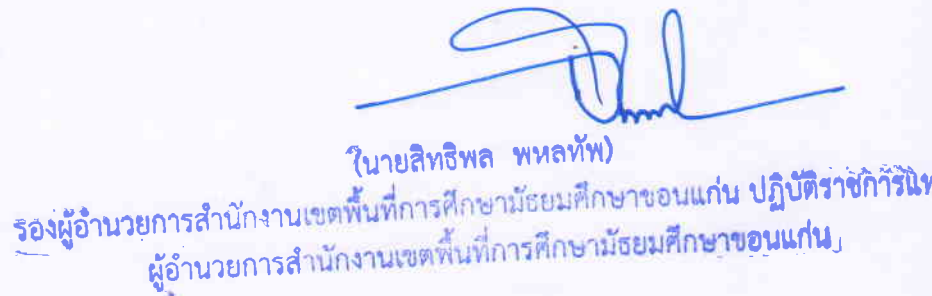 (นายสิทธิพล พหลทัพ)
รองผู้อำนวยการสำนักงานเขตพื้นที่การศึกษามัธยมศึกษาขอนแก่น ปฏิบัติราชการแท
ผู้อำนวยการสำนักงานเขตพื้นที่การศึกษามัธยมศึกษาขอนแก่น